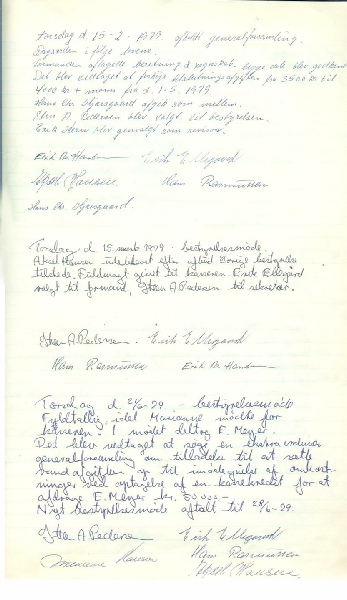 Torsdag d 15-2-1979 afholdt generalforsamling.
Dagsorden i følge lovene.
Formanden aflagde beretning & regnskab. begge dele blev godkendt
Det blev vedtaget at forhøje tilslutningsafgiften fra 3500 kr til
4000 kr + moms fra d. 1-5 1979
Hans Chr. Bjersgaard afgik som mellem.
Ehra A. Pedersen blev valgt til bestyrelsen.
blev genvalgt som revisor.
Erik M. Hansen Erik Ellegaard
Aksel Hansen Hans Rasmussen
Hans Chr.
Torsdag d 15 marts 1979 - bestyrelsesmøde.
Aksel Hansen udeblevet uden afbud øvrige bestyrelse
tilstede. Fuldmagt givet til kasseren. Erik Ellegård
valgt til formand, A. Pedersen til sekretær.
A. Pedersen Erik Ellegaard
Hans Rasmussen Erik M. Hansen
Torsdag d. - bestyrelsesmøde
Fuldtallig, idet Marianne mødte for
kasseren. I mødet deltog E. Meyer.
Det blev vedtaget at søge en ekstraordinær
generalforsamling om tilladelse til at sætte
vandafgiften op til imødegåelse af omkost-
ninger ved optagelse af en kassekredit for at
afdrage E. Meyer kr.
Nyt bestyrelsesmøde aftalt til
A. Pedersen Erik Ellegaard
Marianne Hansen Hans Rasmussen
Aksel Hansen